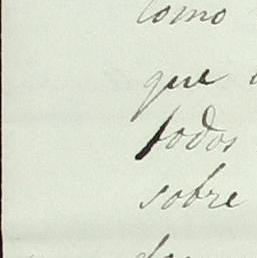 como
que
todos
sobre